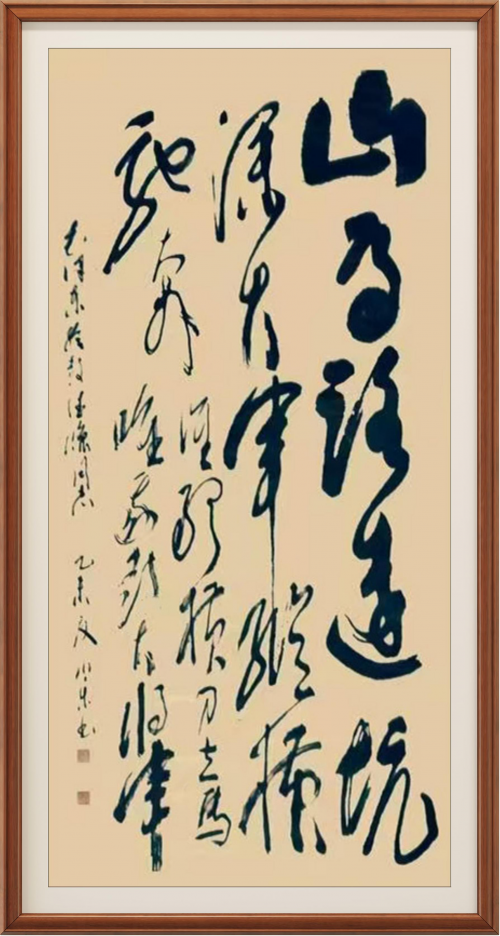 山高路遠坑
深大軍縱橫
馳奔
誰敢橫刀立馬
唯我彭大將軍
毛澤東給彭德懷同志 乙未夏 書